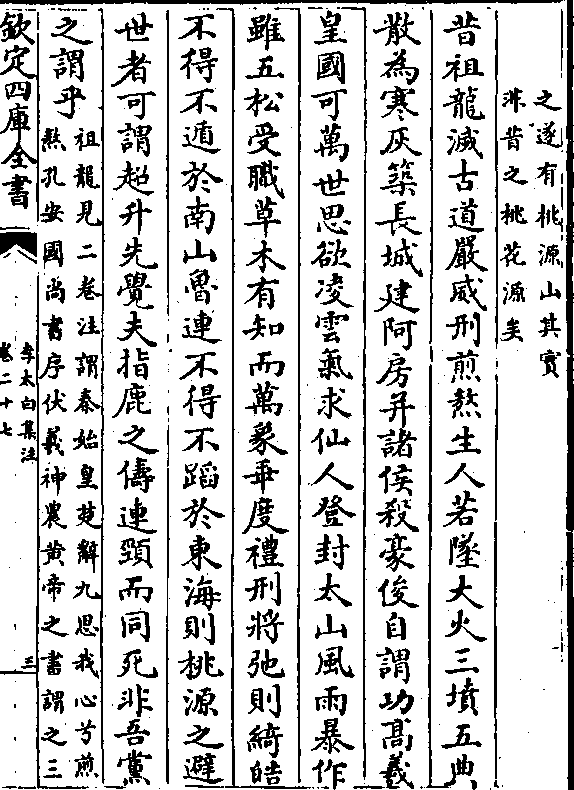 之遂有桃源山其實
非昔之桃花源矣
昔祖龍滅古道嚴威刑煎熬生人若墜大火三墳五典
散為寒灰築長城建阿房并諸侯殺豪俊自謂功髙羲
皇國可萬世思欲凌雲氣求仙人登封太山風雨暴作
雖五松受職草木有知而萬象乖度禮刑將弛則綺皓
不得不遁於南山魯連不得不蹈於東海則桃源之避
世者可謂超升先覺夫指鹿之儔連頸而同死非吾黨
之謂乎
祖龍見二卷注謂秦始皇楚辭九思我心兮煎
熬孔安國尚書序伏羲神農黄帝之書謂之三
欽定四庫全書
李太白集注
卷二十七
三